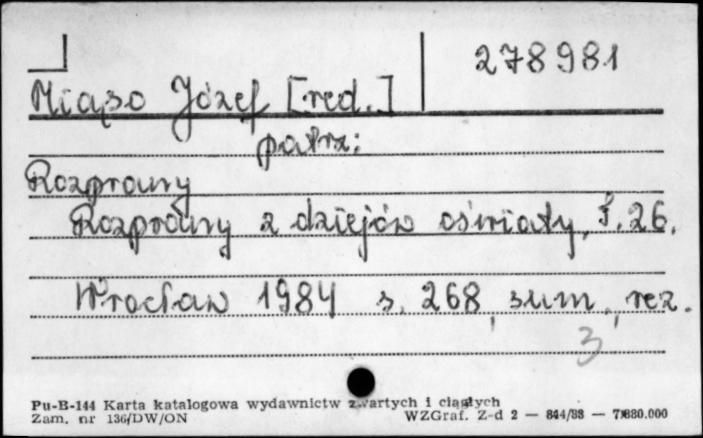 278981
Miąso Józef [red.]
patrz:
Rozprawy
Rozprawy z dziejów oświaty, t. 26.
Wrocław 1984 s. 268, sum., rez.
3
Pu-B-144 Karta katalogowa wydawnictw zwartych i ciągłych
Zam. nr 136/DW/ON WZGraf. Z-d 2 — 844/88 — 880.000